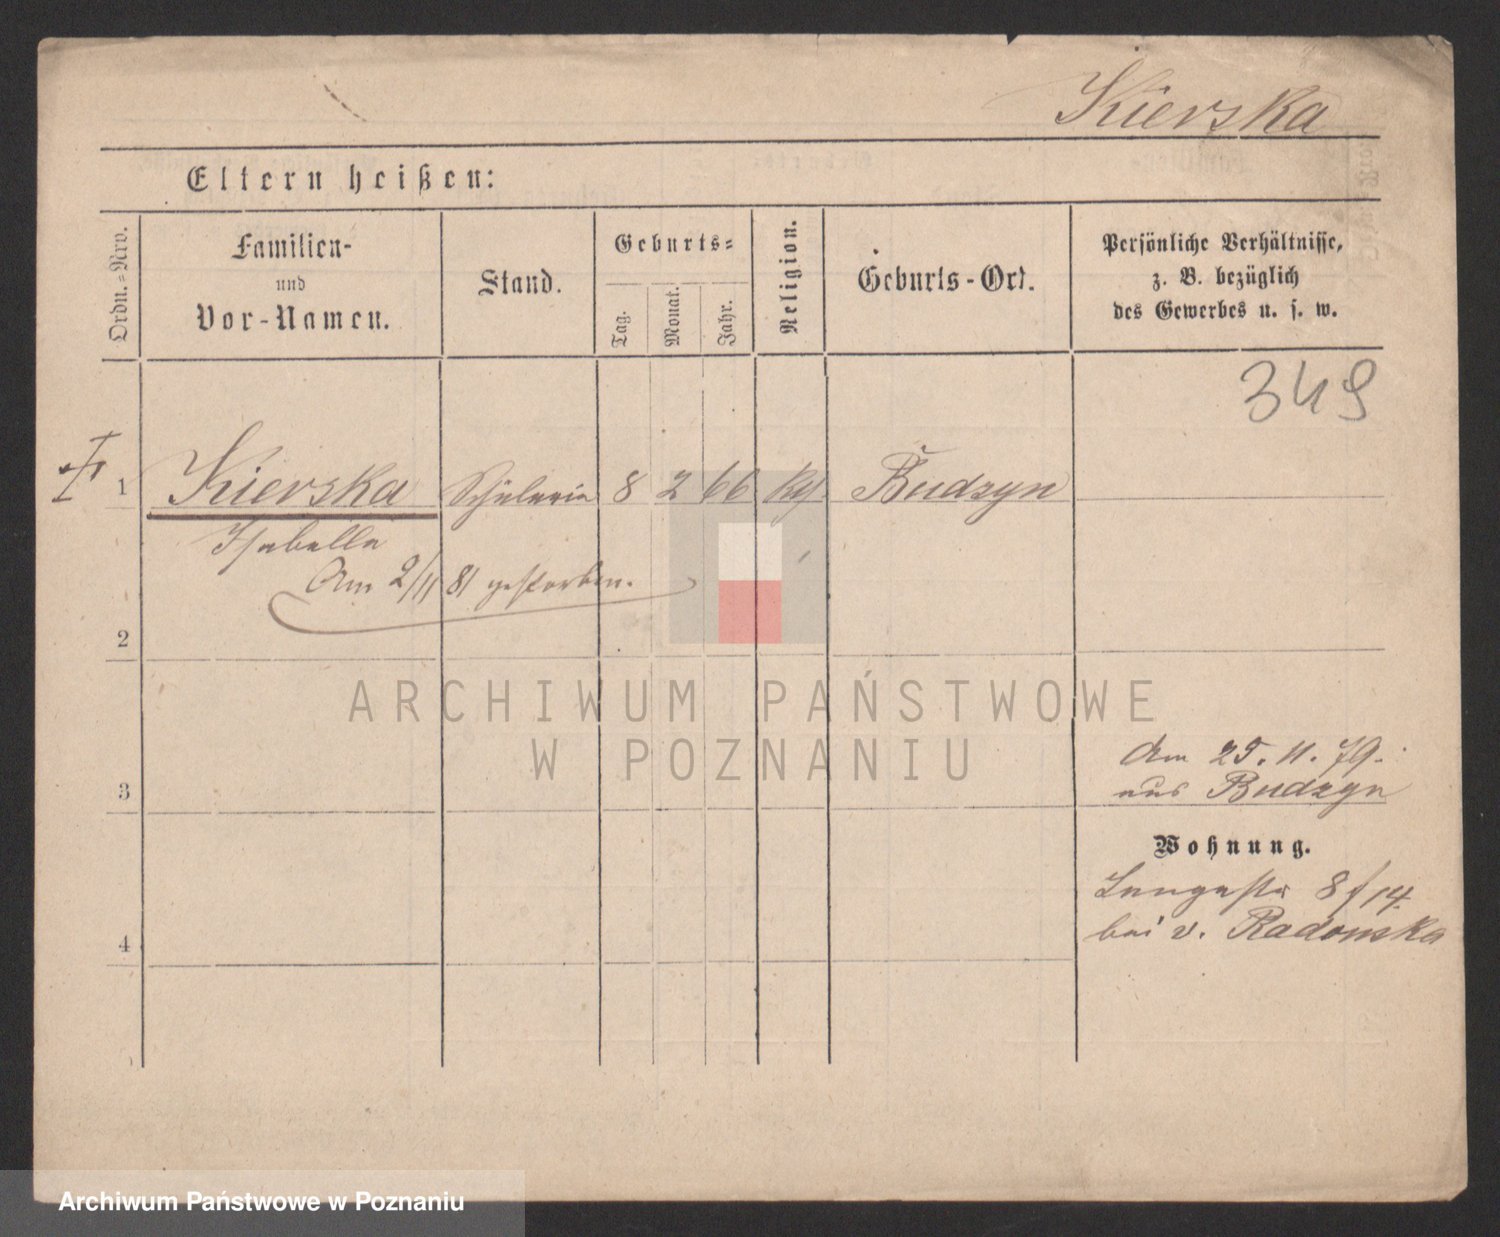 Kierska
Eltern heißen:
Ordn.=Nro.
Familien-
und
Vor-Namen.
Stand.
Geburts=
Tag.
Monat.
Jahr.
Religion.
Geburts-Ort.
Persönliche Verhältnisse,
z. B. bezüglich
des Gewerbes u. s. w.
349
1 Kierska Schülerin 8 2 66 Budzyn
Isabella
Am 2/11 81 gestorben.
2
ARCHIWUM PAŃSTWOWE
W POZNANIU
Am 25. 11. 79.
3 aus Budzyn
Wohnung.
Langestr 8 / 14.
4 bei v. Radonska
Archiwum Państwowe w Poznaniu